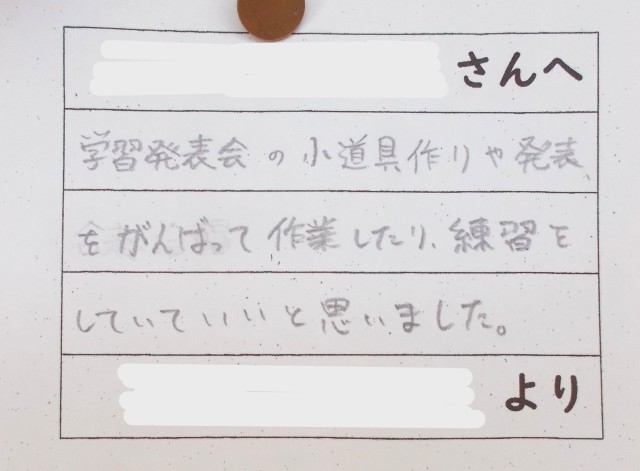 さんへ
学習発表会の小道具作りや発表、
をがんばって作業したり、練習を
していていいと思いました。
より